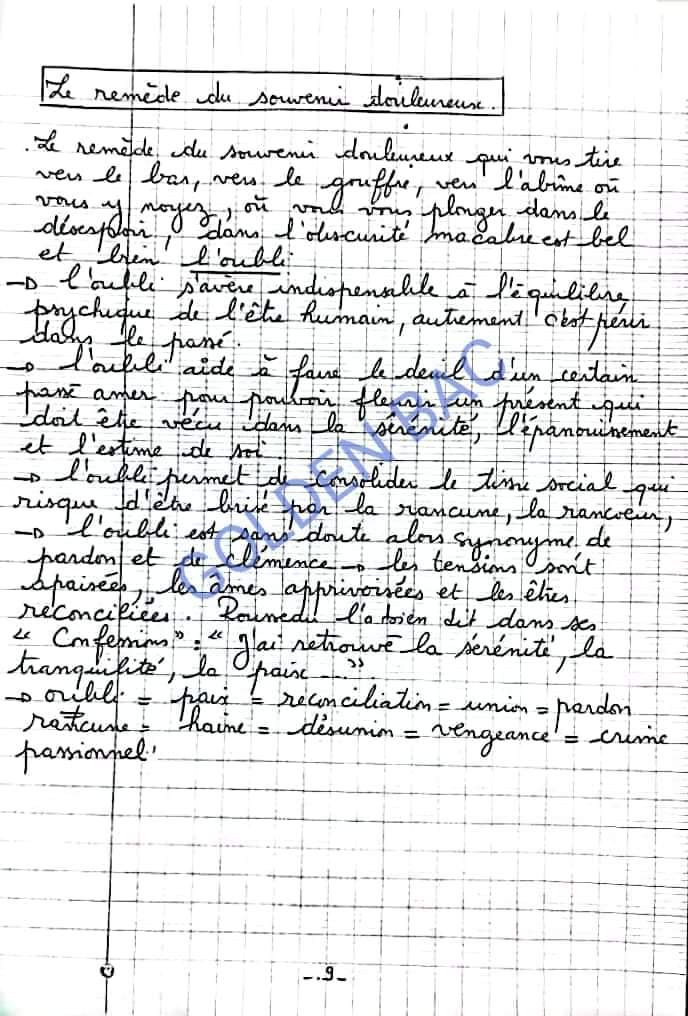 Le remède du souvenir douloureux.
. Le remède du souvenir douloureux qui vous tire
vers le bas, vers le gouffre, vers l'abîme où
vous y noyez, où vous vous plonger dans le
désespoir, dans l'obscurité macabre est bel
et bien l'oubli.
→ l'oubli s'avère indispensable à l'équilibre
psychique de l'être humain, autrement c'est périr
dans le passé.
→ l'oubli aide à faire le deuil d'un certain
passé amer pour pouvoir fleurir un présent qui
doit être vécu dans la sérénité, l'épanouissement
et l'estime de soi.
→ l'oubli permet de consolider le tissu social qui
risque d'être brisé par la rancune, la rancoeur,
→ l'oubli est sans doute alors synonyme de
pardon et de clémence → les tensions sont
apaisées, les âmes apprivoisées et les êtres
reconciliées. Rousseau l'a bien dit dans ses
"Confessions": "J'ai retrouvé la sérénité, la
tranquilité, la paix ..."
→ oubli = paix = reconciliation = union = pardon
rancune = haine = désunion = vengeance = crime
passionnel.
GOLDEN BAC
-.9-